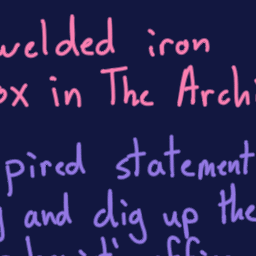 welded iron
ox in The Archi
pired statement
and dig up the